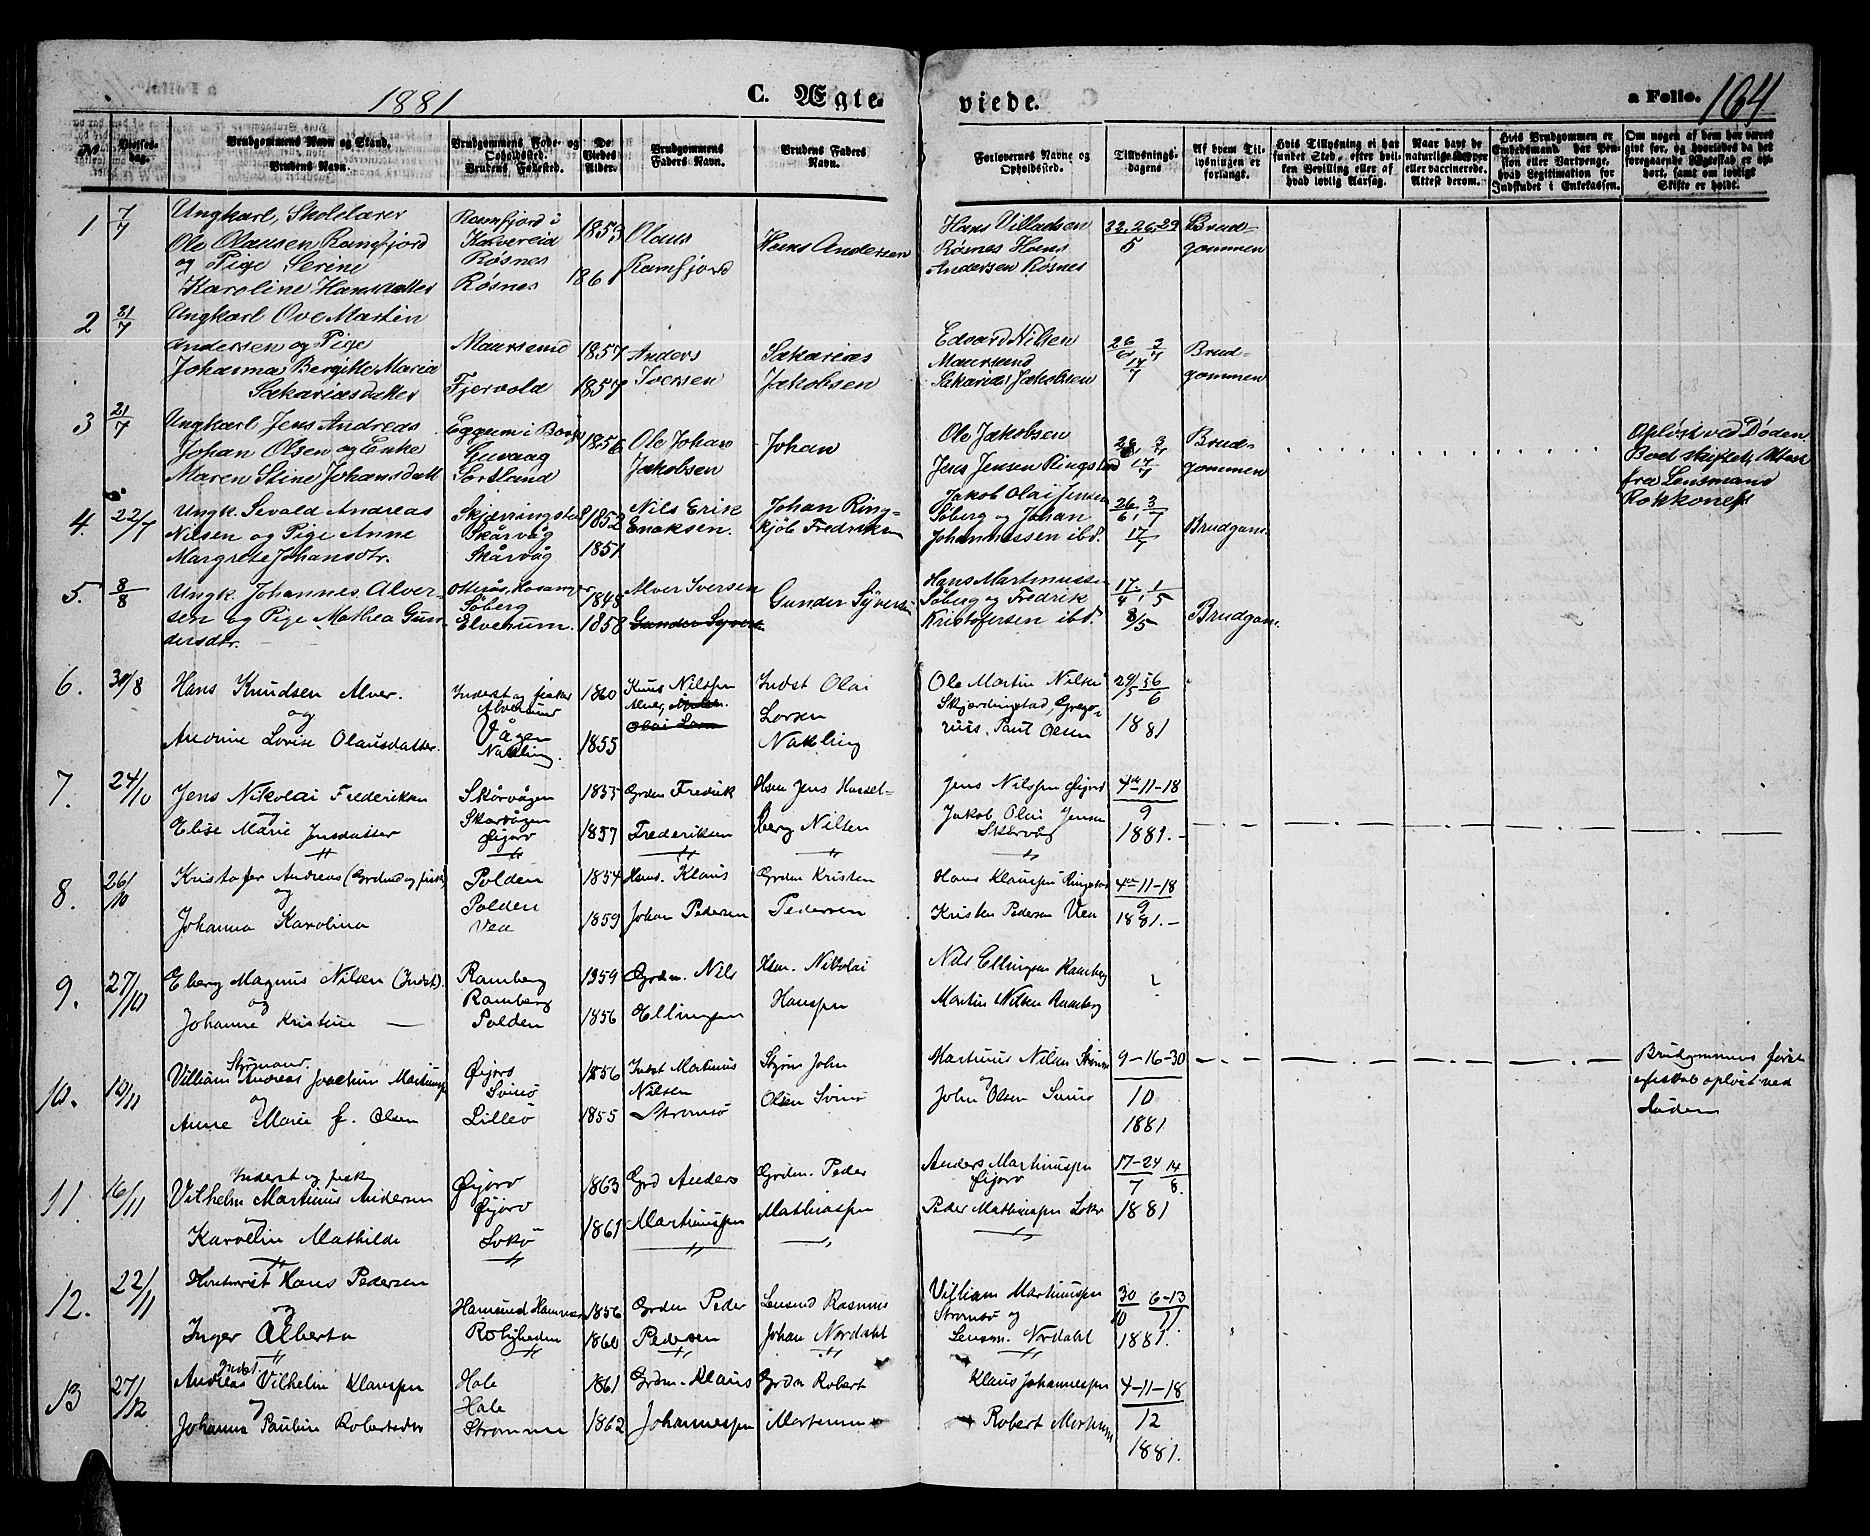 1881
C. Ægte-
viede.
a Folio. 164
No.
Vielses-dag.
Brudgommens Navn og Stand.
Brudens Navn.
Brudgommens Føde- og
Opholdssted.
Brudens Fødested.
De
Viedes
Alder.
Brudgommens
Faders Navn.
Brudens Faders
Navn.
Forlovernes Navne og
Opholdssted.
Tillysnings-
dagene.
Af hvem Til-
lysningen er
forlangt.
Hvis Tillysning ei har
fundet Sted, efter hvil-
ken Bevilling eller af
hvad lovlig Aarsag.
Naar havt de
naturlige Kopper
eller vaccinerede.
Attest derom.
Hvis Brudgommen er
Embedsmand, har Pen-
sion eller Vartpenge,
hvad Legitimation for
Indskudet i Enkekassen.
Om nogen af dem har været
givt for, og hvorledes da det
foregaaende Ægteskab er op-
hørt, samt om lovligt
Skifte er holdt.
1 7/7
Ungkarl, Skolelærer
Ole Olausen Ramfjord
og Pige Serine
Karoline Hansdatter
Ramfjord i
Kolvereid
Røsnes
Røsnes
1853
1861
Olaus
Ramfjord
Hans Andersen
Hans Villadsen
Røsnes Hans
Andersen Røsnes
22. 26. 29
5
Brud-
gommen
2 21/7
Ungkarl Ove Martin
Andersen og Pige
Johanna Bergitte Maria
Sakariasdatter
Maursund
Fjervold
1857
1857
Anders
Iversen
Sakarias
Jakobsen
Edvard Nilsen
Maursund
Sakarias Jakobsen
26/6, 3/7
17/7
Brud-
gommen
3 21/7
Ungkarl Jens Andreas
Johan Olsen og Enke
Maren Stine Johansdatt
Eggum i Borge
Guvaag
Sortland
1856
Ole Johan
Jakobsen
Johan
Ole Jakobsen
Jens Jensen Ringstad
26, 3/7
17/7
Brud-
gommen
Opløst ved Døden
Boet skiftet, Attest
fra Lensmand
Rokkones
4. 22/7
Ungk. Sevald Andreas
Nilsen og Pige Anne
Margrete Johansdtr.
Skjerringstad
Skårvåg
Skårvåg
1852
1851
Nils Erik
Enoksen
Johan Ring-
kjøb Fredriksen
Jakob Olai Jensen
Søberg og Johan
Johannessen ibd.
26/6, 3/7
17/7
Brudgom.
5. 8/8
Ungk. Johannes Alver-
sen og Pige Mathea Gun-
dersdtr.
Otterås, Kosanger
Søberg
Elverum.
1848
1858
Alver Iversen
Gunder Syvers
Gunder Syversen
Hans Martinusse
Søberg og Fredrik
Kristofersen ibd.
17/4, 1/5
8/5
Brudgom.
6. 30/8
Hans Knudsen Alver.
og
Anorine Lovise Olausdatter.
Inderst og fisker
Alversund
Vågen
Nakling.
1860
1855
Knus Nilssen
Alver
Indst Olai
Larsen
Nakling
Ole Martin Nilsen
Skjærdingstad, Grego-
rius. Paul Olsen
29/5 5 6/6
1881
7. 24/10
Jens Nikolai Frederiksen
og
Elise Marie Jensdatter
Skårvågen
Skarvågen
Øijord
1855
1857
Grdm Fredrik
Frederiksen
Hsm Jens Hassel-
berg Nilsen
Jens Nilssen Øijord
Jakob Olai Jensen
Skårvåg
4de-11-18
9
1881.-
8. 26/10
Kristofer Andreas (Grdmd og fisk)
og
Johanna Karolina
Polden
Polden
Vea
1854
1859
Hsm. Klaus
Johan Pedersen
Grdm Kristen
Pedersen
Hans Klaussen Ringstad
Kristen Pedersen Vea
4de-11-18
9
1881.-
9. 27/10
Eberg Magnus Nilsen (Indst).
og
Johanne Kristine
Ramberg
Ramberg
Polden
1859
1856
Grdm. Nils
Ellingsen
Hsm. Nikolai
Hanssen
Nils Ellingsen Ramberg
Martin Nilsen Ramberg
10. 10/11
Styrmand.
Villiam Andreas Joachim Martinussen
og
Anne Marie f. Olsen
Øijord
Svinø
Lilleø
1856
1855
Indst Martinus
Nilsen
Strømsø
Styrm John
Olsen Svinø
Martinus Nilsen Strømsø
og
John Olsen Svinø
9-16-30
10
1881
Brudgommens første
ægteskab opløst ved
døden
11. 16/11
Inderst og fisk
Vilhelm Martinus Andersen
og
Karolin Mathilde
Øijord
Øijord
Lokø
1863
1861
Grd Anders
Martinussen
Grdm. Peder
Mathiassen
Anders Martinussen
Øijord
Peder Mathiassen Lokø
17-24/7 14/8.
1881
12. 22/11
Hans Pedersen
og
Inger Alberta
Hamsund Hammerø
Roligheden
1856
1860
Grdm Peder
Pedersen
Lensmd Rasmus
Johan Nordahl
Villiam Martinussen
Strømsø og
Lensm. Nordahl
30/10 6-13/11
1881.
13 27/12
Indst
Andreas Vilhelm Klaussen
og
Johanna Pauline Robertsdtr
Hole
Hole
Strømmen
1861
1862
Grdm. Klaus
Johannessen
Grdm Robert
Mortensen
Klaus Johannessen
Robert Mortensen
4-11-18
12
1881.